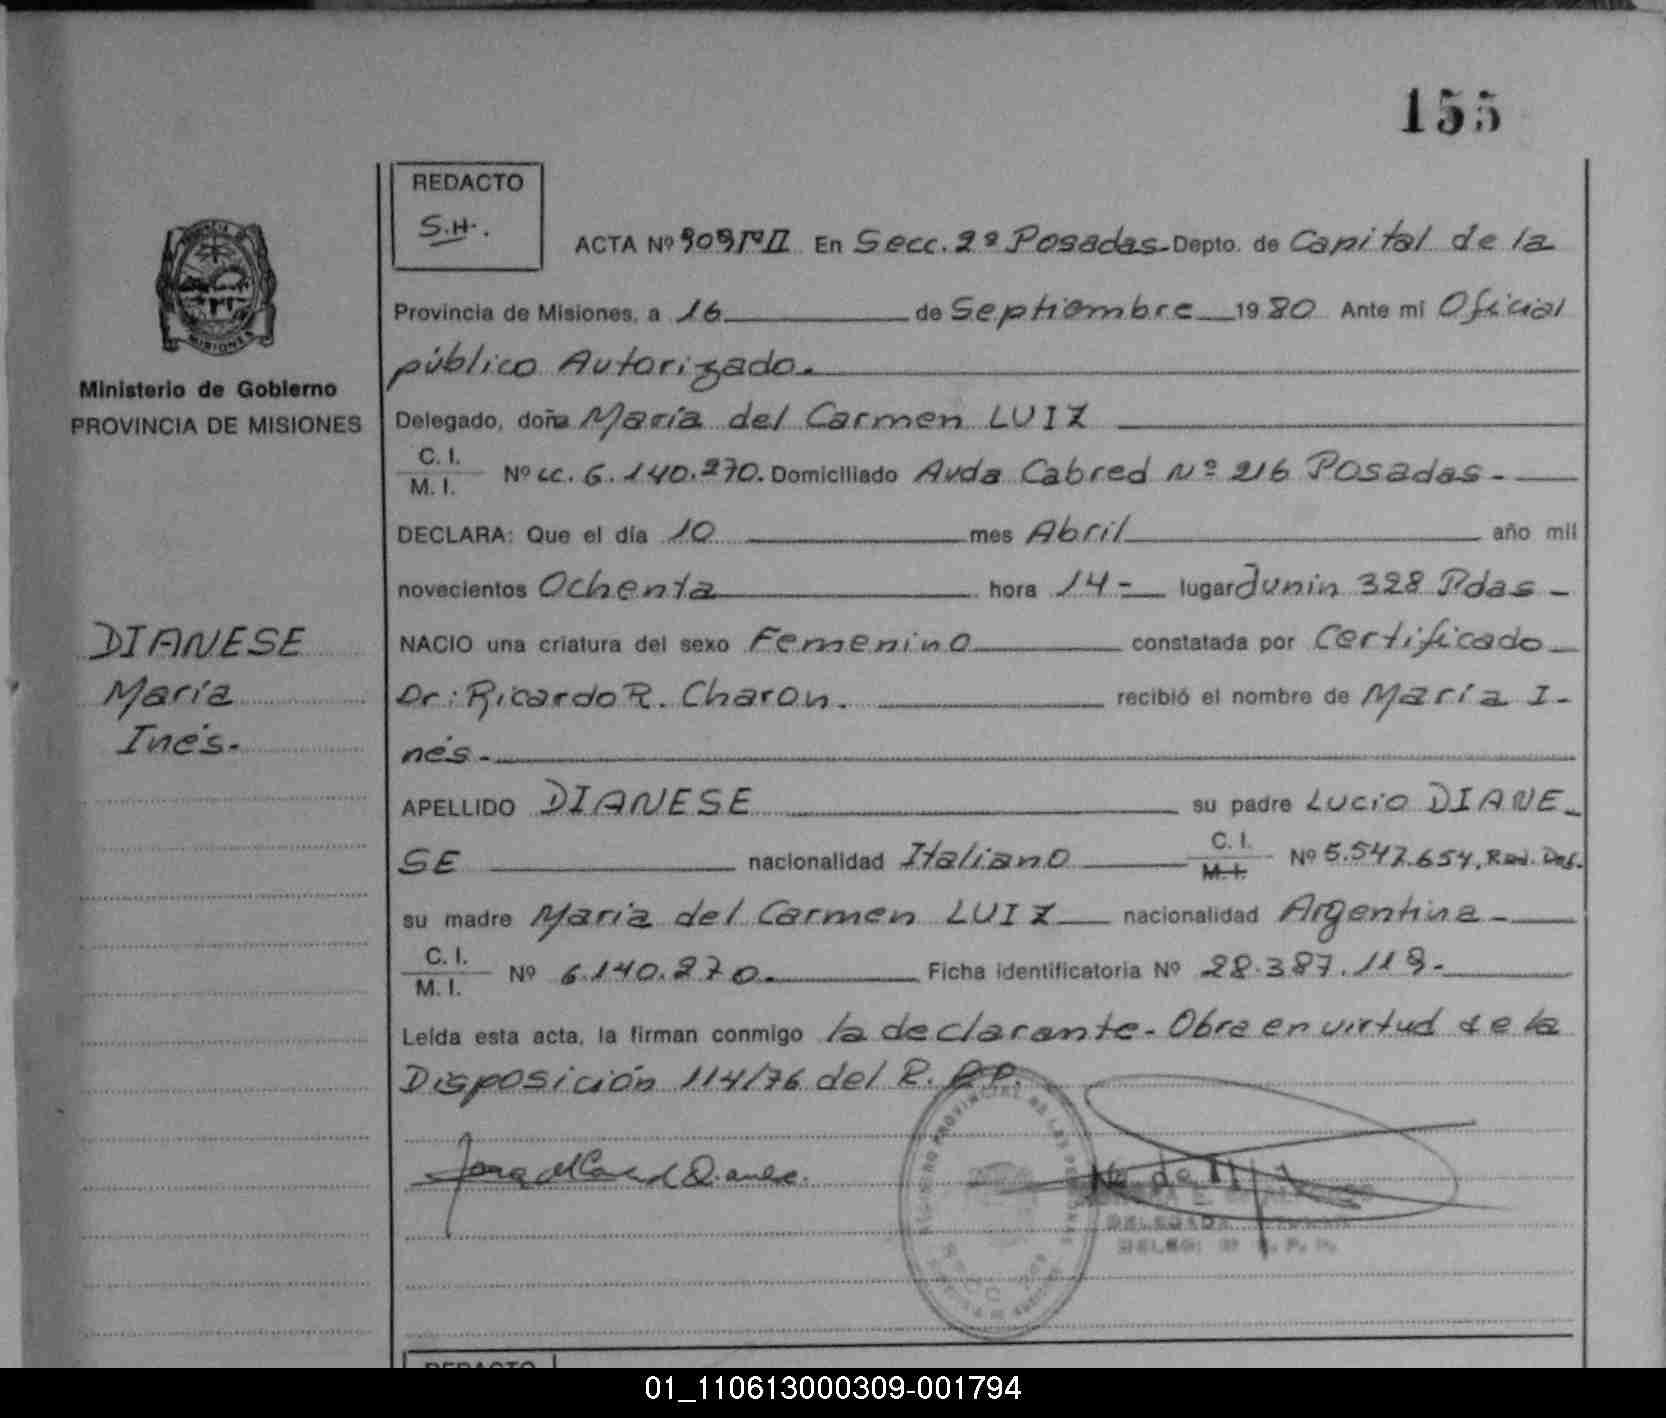 155
REDACTO
S.H.
ACTA Nº 909 Tº II En Secc. 2º Posadas Depto. de Capital de la
MISIONES
Provincia de Misiones, a 16 de Septiembre 1980 Ante mi Oficial
público Autorizado.
Ministerio de Gobierno
PROVINCIA DE MISIONES
Delegado, doña María del Carmen LUIZ
C. I.
M. I. Nº LC. 6.140.270. Domiciliado Avda Cabred Nº 216 Posadas-
DECLARA: Que el día 10 mes Abril año mil
novecientos Ochenta hora 14- lugar Junin 328 Pdas-
DIANESE
María
Inés.
NACIO una criatura del sexo Femenino constatada por Certificado
Dr: Ricardo R. Charon. recibió el nombre de María I-
nés-
APELLIDO DIANESE su padre Lucio DIANE-
SE nacionalidad Italiano C. I. M. I. Nº 5.547.654, Rad. Def.
su madre María del Carmen LUIZ nacionalidad Argentina-
C. I.
M. I. Nº 6.140.270. Ficha identificatoria Nº 28.387.119.
Leída esta acta, la firman conmigo la declarante- Obra en virtud de la
Disposición 114/76 del R. P.P.
REGISTRO PROVINCIAL DE LAS PERSONAS
DELEGADA TITULAR
REDACTO
01_110613000309-001794